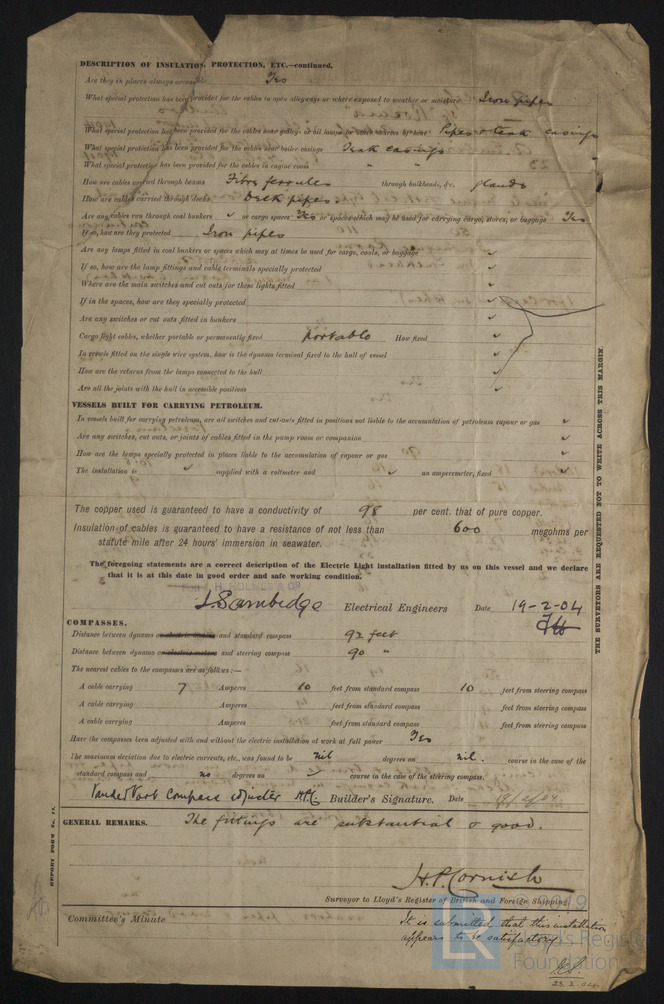 DESCRIPTION OF INSULATION, PROTECTION, ETC.—continued.
Are they in places always accessible Yes
What special protection has been provided for the cables in open alleyways or where exposed to weather or moisture Iron pipes
What special protection has been provided for the cables near galleys or oil lamps or other sources of heat Pipes & teak casings
What special protection has been provided for the cables near boiler casings Teak casings
What special protection has been provided for the cables in engine room " "
How are cables carried through beams Fibre ferrules through bulkheads, &c. glands
How are cables carried through decks Deck pipes.
Are any cables run through coal bunkers ✓ or cargo spaces Yes or spaces which may be used for carrying cargo, stores, or baggage Yes
If so, how are they protected Iron pipes
Are any lamps fitted in coal bunkers or spaces which may at times be used for cargo, coals, or baggage ✓
If so, how are the lamp fittings and cable terminals specially protected ✓
Where are the main switches and cut outs for these lights fitted ✓
If in the spaces, how are they specially protected ✓
Are any switches or cut outs fitted in bunkers ✓
Cargo light cables, whether portable or permanently fixed Portable How fixed ✓
In vessels fitted on the single wire system, how is the dynamo terminal fixed to the hull of vessel ✓
How are the returns from the lamps connected to the hull ✓
Are all the joints with the hull in accessible positions ✓
VESSELS BUILT FOR CARRYING PETROLEUM.
In vessels built for carrying petroleum, are all switches and cut-outs fitted in positions not liable to the accumulation of petroleum vapour or gas ✓
Are any switches, cut outs, or joints of cables fitted in the pump room or companion ✓
How are the lamps specially protected in places liable to the accumulation of vapour or gas ✓
The installation is ✓ supplied with a voltmeter and ✓ an amperemeter, fixed ✓
The copper used is guaranteed to have a conductivity of 98 per cent. that of pure copper.
Insulation of cables is guaranteed to have a resistance of not less than 600 megohms per
statute mile after 24 hours' immersion in seawater.
The foregoing statements are a correct description of the Electric Light installation fitted by us on this vessel and we declare
that it is at this date in good order and safe working condition.
Electrical Engineers Date 19-2-04
COMPASSES.
Distance between dynamo or electric motors and standard compass 92 feet
Distance between dynamo or electric motors and steering compass 90 "
The nearest cables to the compasses are as follows:—
A cable carrying 7 Amperes 10 feet from standard compass 10 feet from steering compass
A cable carrying Amperes feet from standard compass feet from steering compass
A cable carrying Amperes feet from standard compass feet from steering compass
Have the compasses been adjusted with and without the electric installation at work at full power Yes
The maximum deviation due to electric currents, etc., was found to be nil degrees on nil. course in the case of the
standard compass and no degrees on ✓ course in the case of the steering compass.
Compass adjuster Builder's Signature. Date 19/2/04
GENERAL REMARKS. The fittings are substantial & good.
H.P. Cornish
Surveyor to Lloyd's Register of British and Foreign Shipping.
Committee's Minute It is submitted that this installation
appears to be satisfactory
23.2.04
THE SURVEYORS ARE REQUESTED NOT TO WRITE ACROSS THIS MARGIN.
REPORT FORM No. 11.
2019
Lloyd's Register
Foundation